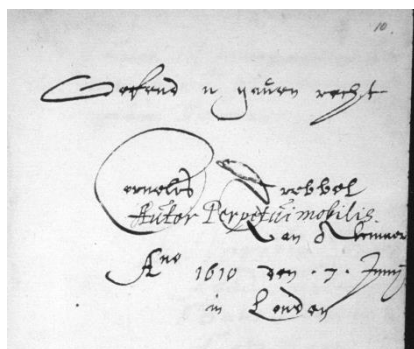 10.
Oeffend u gaven recht
Cornelis Drebbel
Autor Perpetui mobilis.
Van Alcmaer
Ano 1610 den . 7 . Junij
in Londen